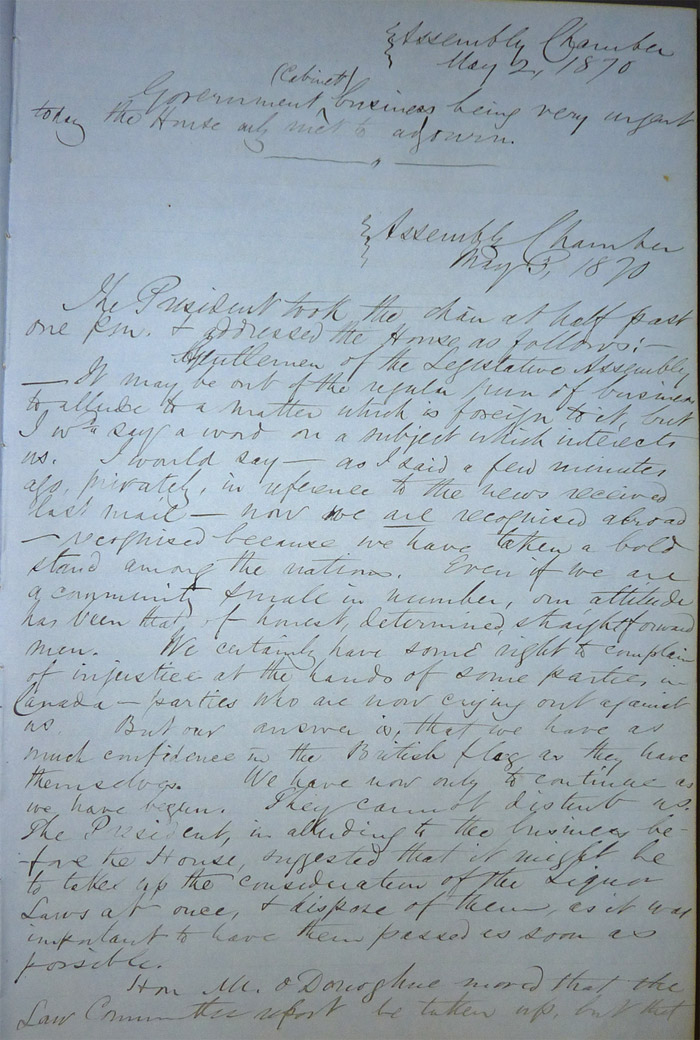 Assembly Chamber
May 2, 1870
(Cabinet)
Government business being very urgent
today the House only met to adjourn.
Assembly Chamber
May 3, 1870
The President took the chair at half past
one p.m. & addressed the House as follows:—
Gentlemen of the Legislative Assembly
— It may be out of the regular run of business
to allude to a matter which is foreign to it, but
I wd say a word on a subject which interests
us. I would say — as I said a few minutes
ago, privately, in reference to the news received
last mail — now we are recognised abroad
— recognised because we have taken a bold
stand among the nations. Even if we are
a community small in number, our attitude
has been that of honest, determined, straightforward
men. We certainly have some right to complain
of injustice at the hands of some parties in
Canada — parties who are now crying out against
us. But our answer is, that we have as
much confidence in the British flag as they have
themselves. We have now only to continue as
we have begun. They cannot disturb us.
The President, in alluding to the business be-
fore the House, suggested that it might be
to take up the consideration of the Liquor
Laws at once, & dispose of them, as it was
important to have them passed as soon as
possible.
Hon Mr. O'Donoghue moved that the
Law Committee report be taken up, but that